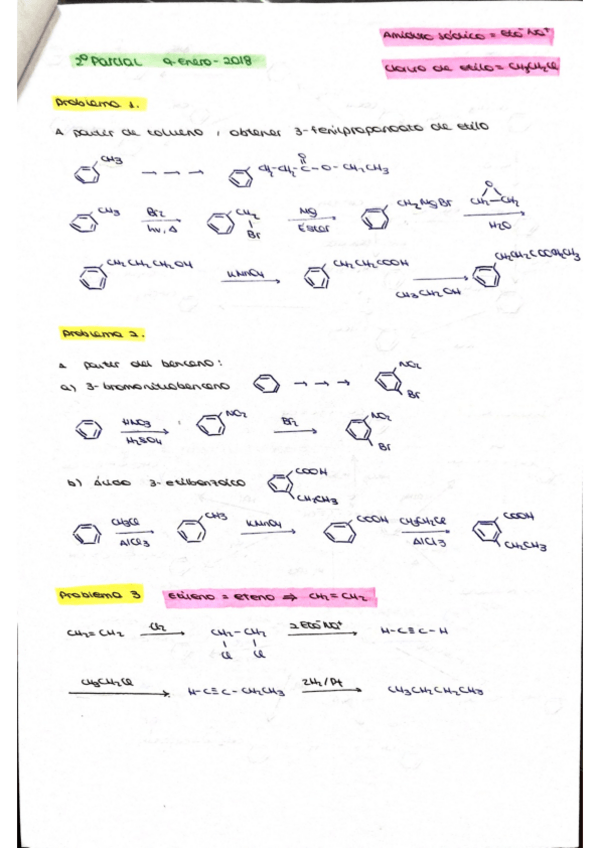 Amiduro sódico = EtO⁻Na⁺
2º Parcial 9-Enero-2018
Cloruro de etilo = CH₃CH₂Cl
Problema 1.
A partir de tolueno, obtener 3-fenilpropanoato de etilo
CH₃ → → → CH₂-CH₂-C-O-CH₂CH₃
O
CH₃ Br₂ hν, Δ CH₂ Br Mg Éster CH₂MgBr O CH₂-CH₂ H₂O
CH₂CH₂CH₂OH KMnO₄ CH₂CH₂COOH CH₃CH₂OH CH₂CH₂COOCH₂CH₃
Problema 2.
A partir del benceno:
a) 3-bromonitrobenceno → → → NO₂ Br
HNO₃ H₂SO₄ NO₂ Br₂ NO₂ Br
b) ácido 3-etilbenzoico COOH CH₂CH₃
CH₃Cl AlCl₃ CH₃ KMnO₄ COOH CH₃CH₂Cl AlCl₃ COOH CH₂CH₃
Problema 3 Etileno = eteno ⇒ CH₂=CH₂
CH₂=CH₂ Cl₂ CH₂-CH₂ Cl Cl 2 EtO⁻Na⁺ H-C≡C-H
CH₃CH₂Cl H-C≡C-CH₂CH₃ 2H₂/Pt CH₃CH₂CH₂CH₃